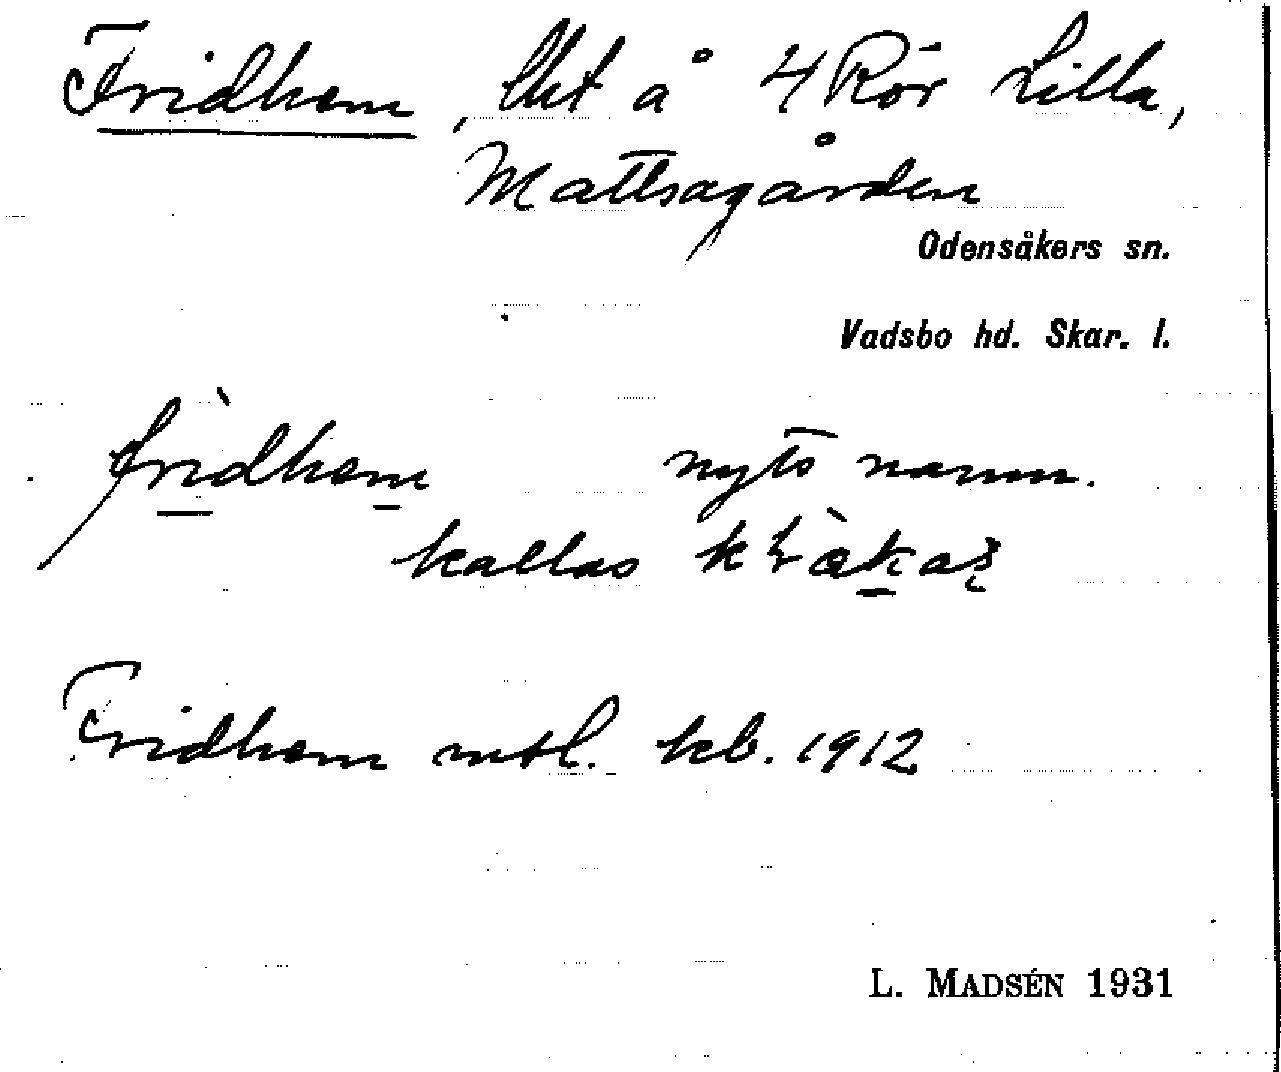 Fridhem, lht å 4 Rör Lilla,
Mattsagården
Odensåkers sn.
Vadsbo hd. Skar. l.
fridhem nyts namn.
kallas
Fridhem mtl. kb. 1912
L. MADSÉN 1931